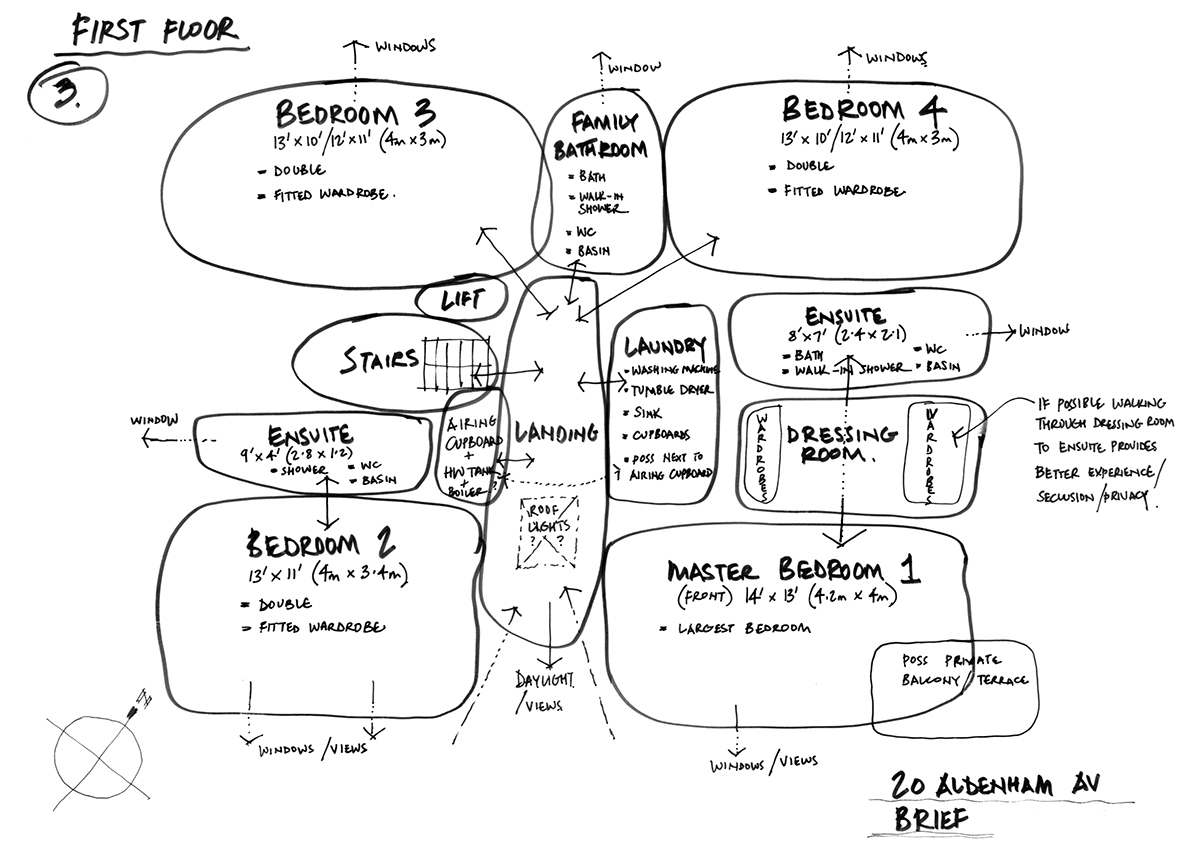 FIRST FLOOR
3.
WINDOWS
WINDOW
WINDOWS
BEDROOM 3
13' x 10' / 12' x 11' (4m x 3m)
= DOUBLE
= FITTED WARDROBE.
FAMILY
BATHROOM
= BATH
= WALK-IN
SHOWER
= WC
= BASIN
BEDROOM 4
13' x 10' / 12' x 11' (4m x 3m)
= DOUBLE
= FITTED WARDROBE
LIFT
STAIRS
LANDING
LAUNDRY
= WASHING MACHINE
= TUMBLE DRYER
= SINK
= CUPBOARDS
= POSS NEXT TO
? AIRING CUPBOARD
ENSUITE
8' x 7' (2.4 x 2.1)
= BATH
= WALK-IN SHOWER
= WC
= BASIN
WINDOW
WINDOW
ENSUITE
9' x 4' (2.8 x 1.2)
= SHOWER
= WC
= BASIN
AIRING
CUPBOARD
+
HW TANK
+
BOILER ?
WARDROBES
DRESSING
ROOM.
WARDROBES
IF POSSIBLE WALKING
THROUGH DRESSING ROOM
TO ENSUITE PROVIDES
BETTER EXPERIENCE /
SECLUSION / PRIVACY.
ROOF
LIGHTS
? ?
BEDROOM 2
13' x 11' (4m x 3.4m)
= DOUBLE
= FITTED WARDROBE
MASTER BEDROOM 1
(FRONT) 14' x 13' (4.2m x 4m)
= LARGEST BEDROOM
POSS PRIVATE
BALCONY / TERRACE
DAYLIGHT
/ VIEWS
N
WINDOWS / VIEWS
WINDOWS / VIEWS
20 ALDENHAM AV
BRIEF